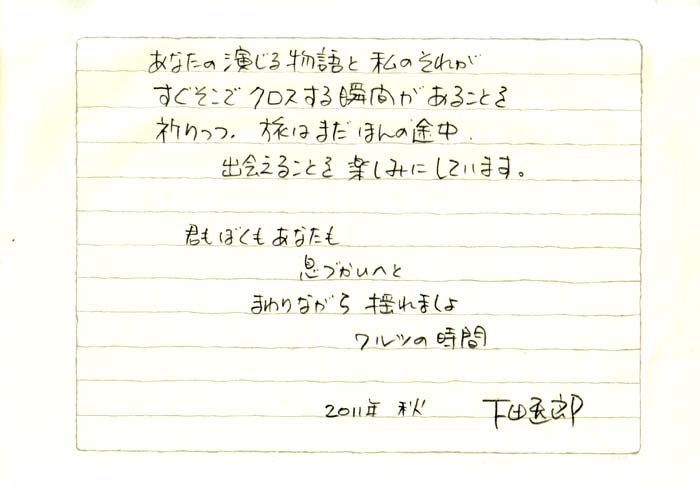 あなたの演じる物語と私のそれが
すぐそこでクロスする瞬間があることを
祈りつつ、旅はまだほんの途中、
出会えることを楽しみにしています。
君もぼくもあなたも
息づかいへと
まわりながら 揺れましょ
ワルツの時間
2011年 秋 下田逸郎